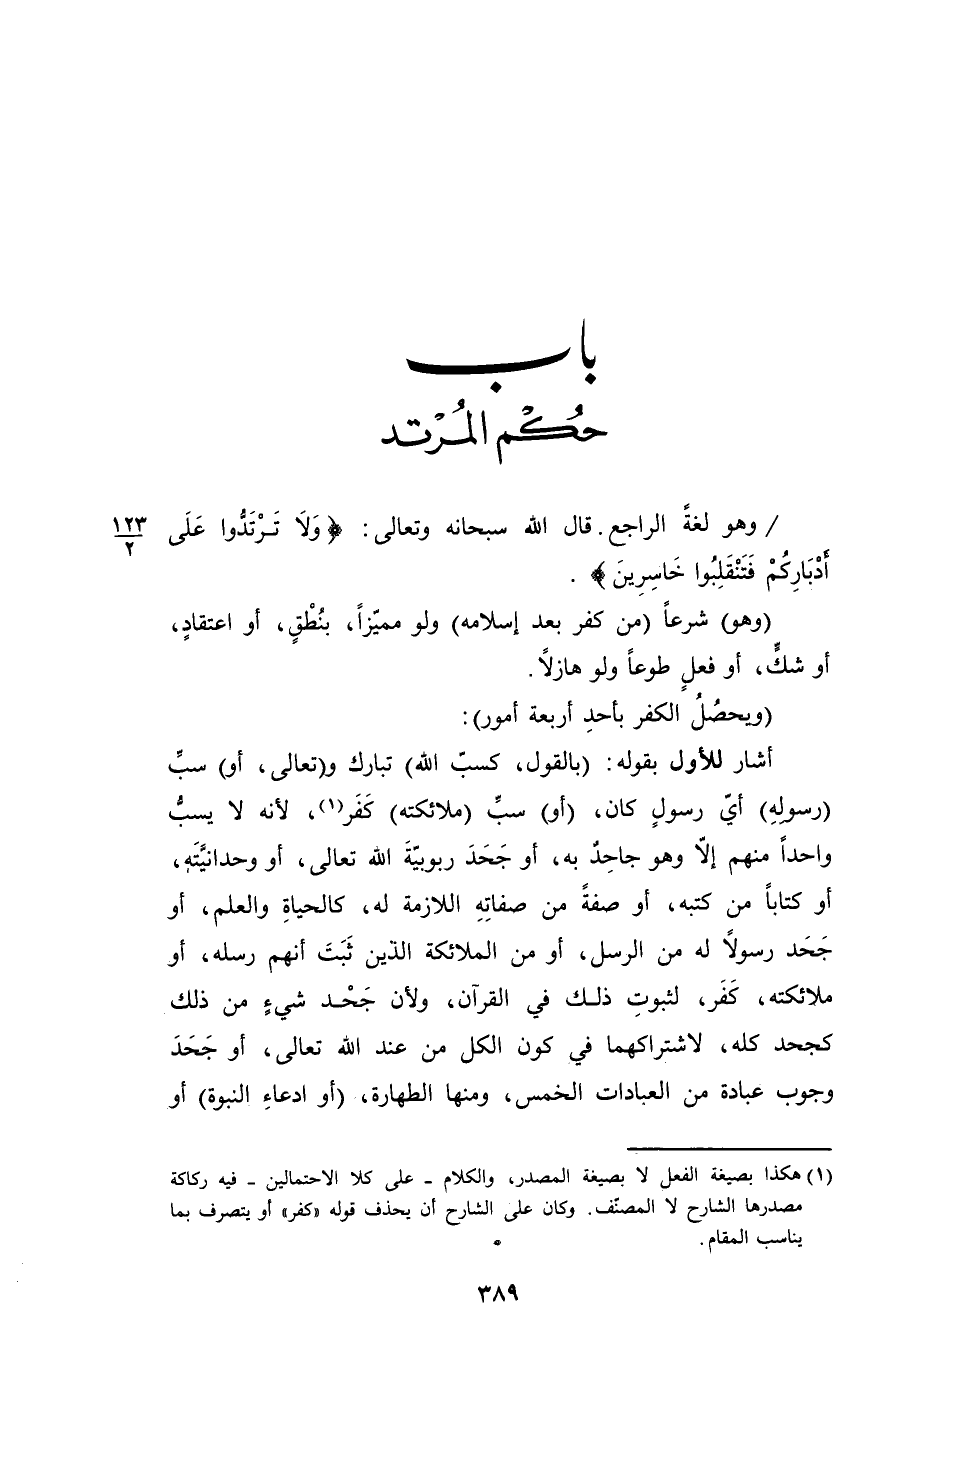 باب
حُكْم المُرْتد
/ وهو لغةً الراجع. قال الله سبحانه وتعالى: ﴿وَلَا تَرْتَدُّوا عَلَى ١٢٣/٢
أَدْبَارِكُمْ فَتَنْقَلِبُوا خَاسِرِينَ﴾ .
(وهو) شرعاً (من كفر بعد إسلامه) ولو مميّزاً، بنُطْقٍ، أو اعتقادٍ،
أو شكٍّ، أو فعلٍ طوعاً ولو هازلاً.
(ويحصُلُ الكفر بأحدِ أربعة أمور):
أشار للأول بقوله: (بالقول، كسبّ الله) تبارك و(تعالى، أو) سبِّ
(رسولِهِ) أيّ رسولٍ كان، (أو) سبِّ (ملائكته) كَفَر(١)، لأنه لا يسبُّ
واحداً منهم إلّا وهو جاحِدٌ به، أو جَحَدَ ربوبيّةَ الله تعالى، أو وحدانيَّتَه،
أو كتاباً من كتبه، أو صفةً من صفاتِهِ اللازمة له، كالحياةِ والعلم، أو
جَحَد رسولاً له من الرسل، أو من الملائكة الذين ثَبَتَ أنهم رسله، أو
ملائكته، كَفَر، لثبوتِ ذلك في القرآن، ولأن جَحْد شيءٍ من ذلك
كجحد كله، لاشتراكهما في كون الكل من عند الله تعالى، أو جَحَدَ
وجوب عبادة من العبادات الخمس، ومنها الطهارة، (أو ادعاءِ النبوة) أو
(١) هكذا بصيغة الفعل لا بصيغة المصدر، والكلام ـ على كلا الاحتمالين ـ فيه ركاكة
مصدرها الشارح لا المصنّف. وكان على الشارح أن يحذف قوله «كفر» أو يتصرف بما
يناسب المقام.
٣٨٩